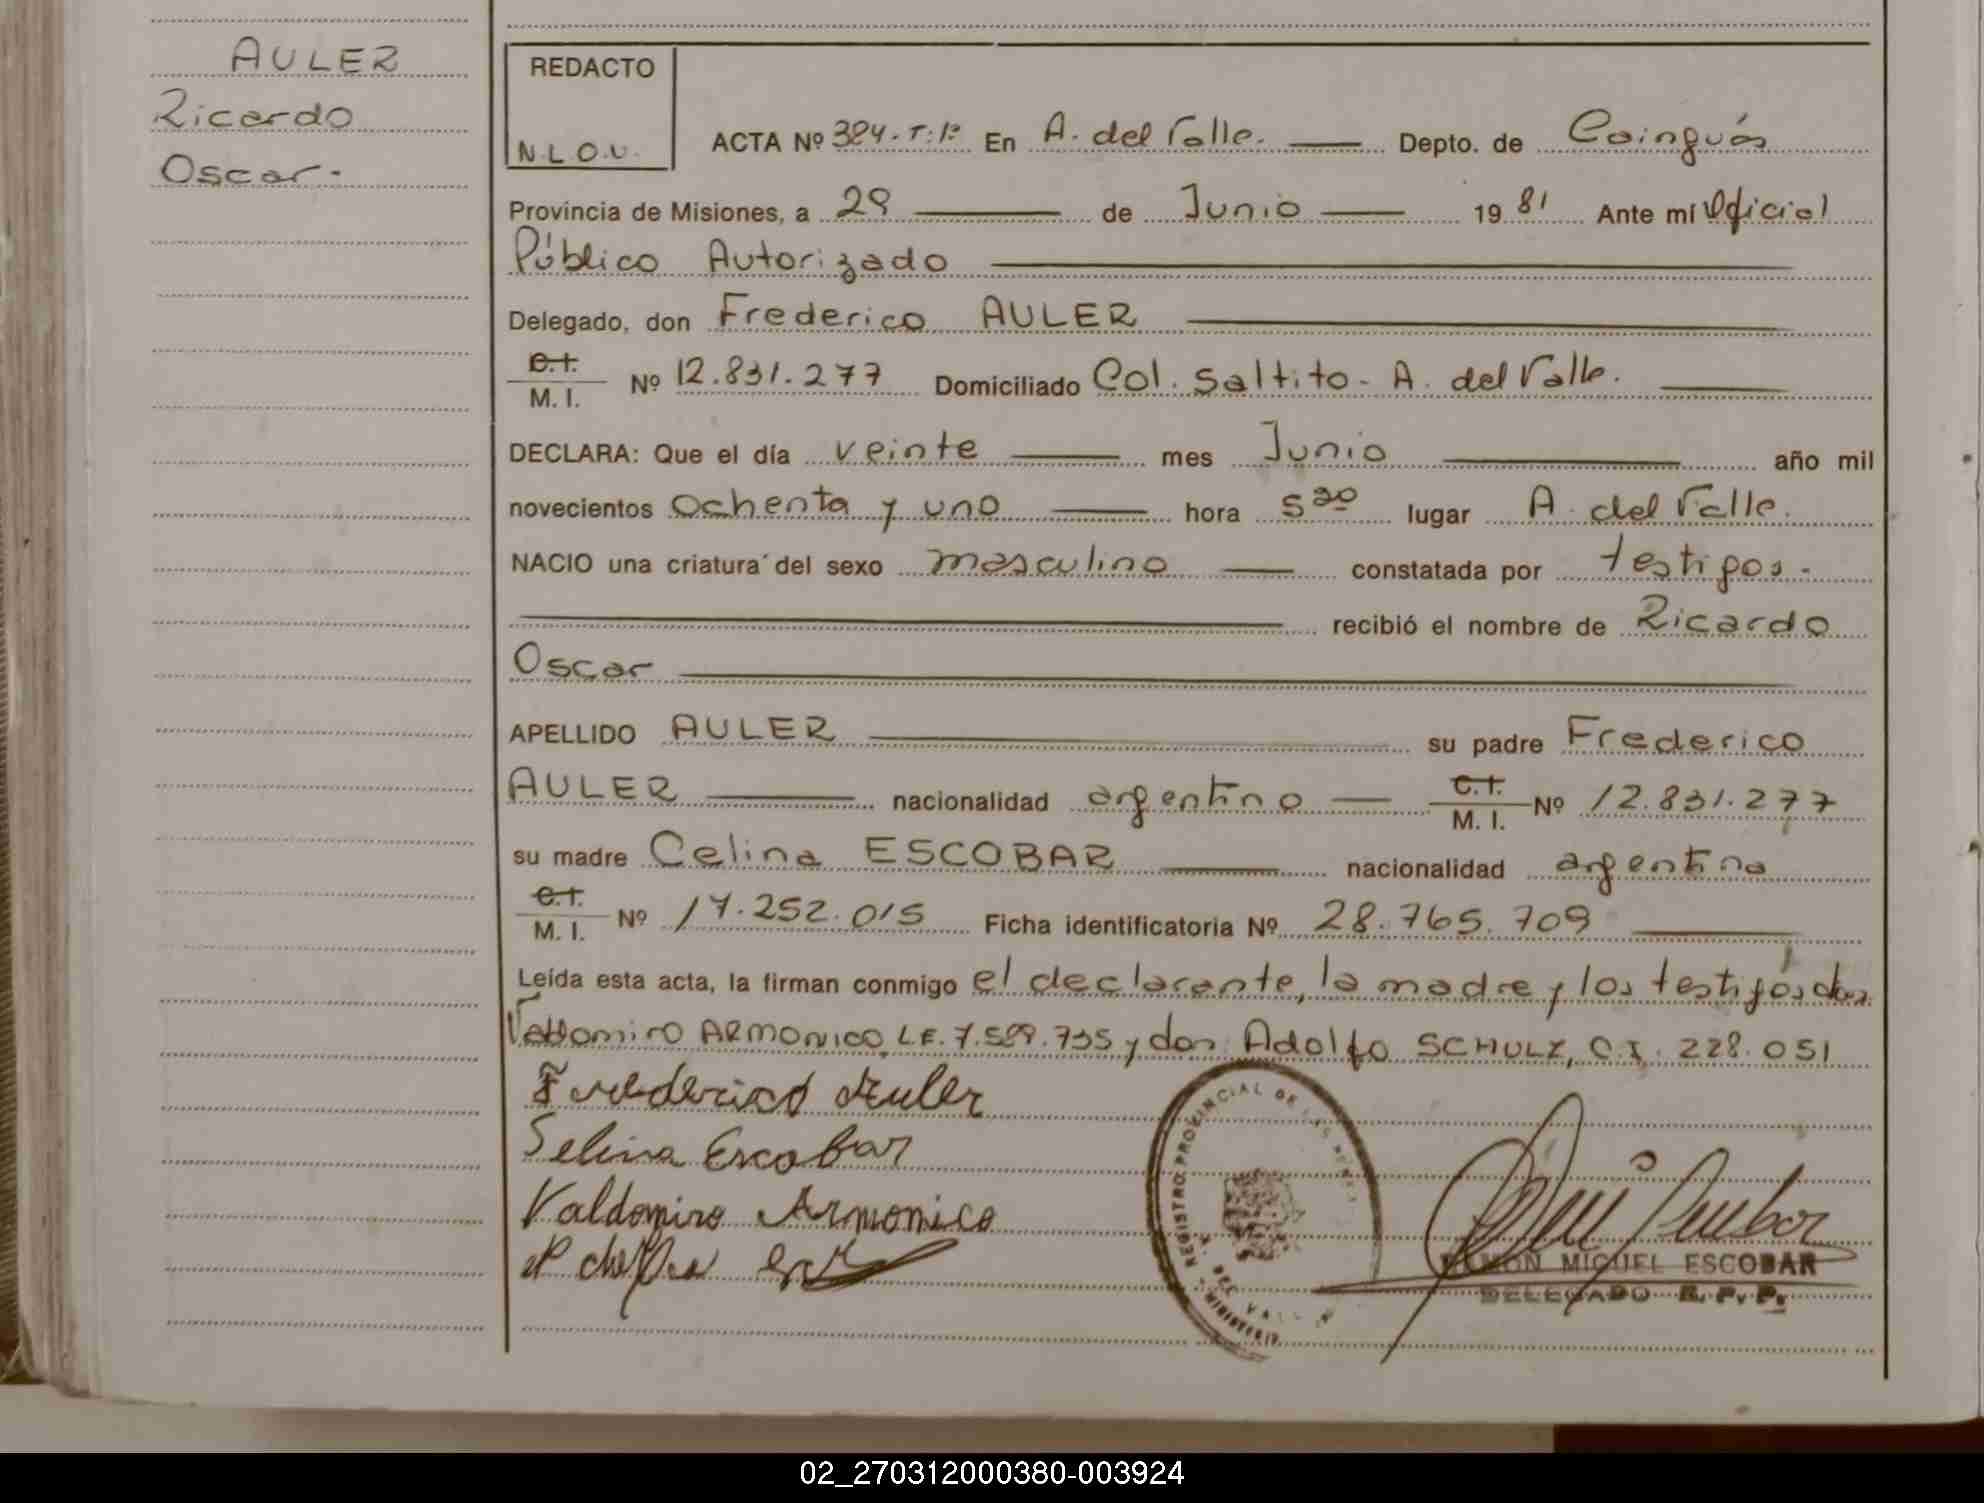 AULER
Ricardo
Oscar.
REDACTO
N.L.O.U.
ACTA Nº 384.T:1º En A. del Valle. Depto. de Cainguás
Provincia de Misiones, a 29 de Junio 19 81 Ante mí Oficial
Público Autorizado
Delegado, don Frederico AULER
C.I. M. I. Nº 12.831.277 Domiciliado Col. Saltito - A. del Valle.
DECLARA: Que el día veinte mes Junio año mil
novecientos ochenta y uno hora 5 20 lugar A. del Valle.
NACIO una criatura del sexo masculino constatada por testigos.
recibió el nombre de Ricardo
Oscar
APELLIDO AULER su padre Frederico
AULER nacionalidad argentino C.I. M. I. Nº 12.831.277
su madre Celina ESCOBAR nacionalidad argentina
C.I. M. I. Nº 17.252.015 Ficha identificatoria Nº 28.765.709
Leída esta acta, la firman conmigo el declarante, la madre y los testigos, don
Valdomiro ARMONICO, L.E. 7.589.735 y don Adolfo SCHULZ, C.I. 228.051
Frederico Auler
Selina Escobar
Valdomiro Armonico
REGISTRO PROVINCIAL DE LAS PERS
A. DEL VALLE
RAMON MIGUEL ESCOBAR
DELEGADO R. P. P.
02_270312000380-003924